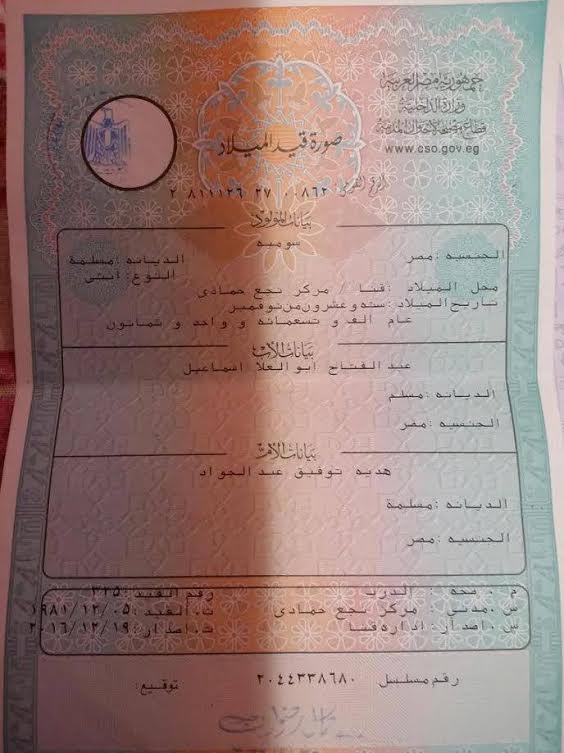 جمهورية مصر العربية
وزارة الداخلية
قطاع مصلحة الأحوال المدنية
www.cso.gov.eg
صورة قيد الميلاد
الرقم القومى: ٢ ٨١١١٢٦ ٢٧ ٠٠٨٦٢
بيانات المولود
سوميه
الجنسيه : مصر الديانه : مسلمة
النوع : أنثى
محل الميلاد : قنا / مركز نجع حمادى
تاريخ الميلاد : سته وعشرون من نوفمبر
عام الف و تسعمائه و واحد و ثمانون
بيانات الأب
عبد الفتاح ابو العلا اسماعيل
الديانه : مسلم
الجنسيه : مصر
بيانات الأم
هديه توفيق عبد الجواد
الديانه : مسلمة
الجنسيه : مصر
م . صحه : الدرب رقم القيد : ٣٢٥
س . مدنى : مركز نجع حمادى ت . القيد : ١٩٨١/١٢/٠٥
س . اصدار : ادارة قنا ت . اصدار : ٢٠١٦/١٢/١٩
رقم مسلسل ٢٠٤٤٣٣٨٦٨٠ توقيع :